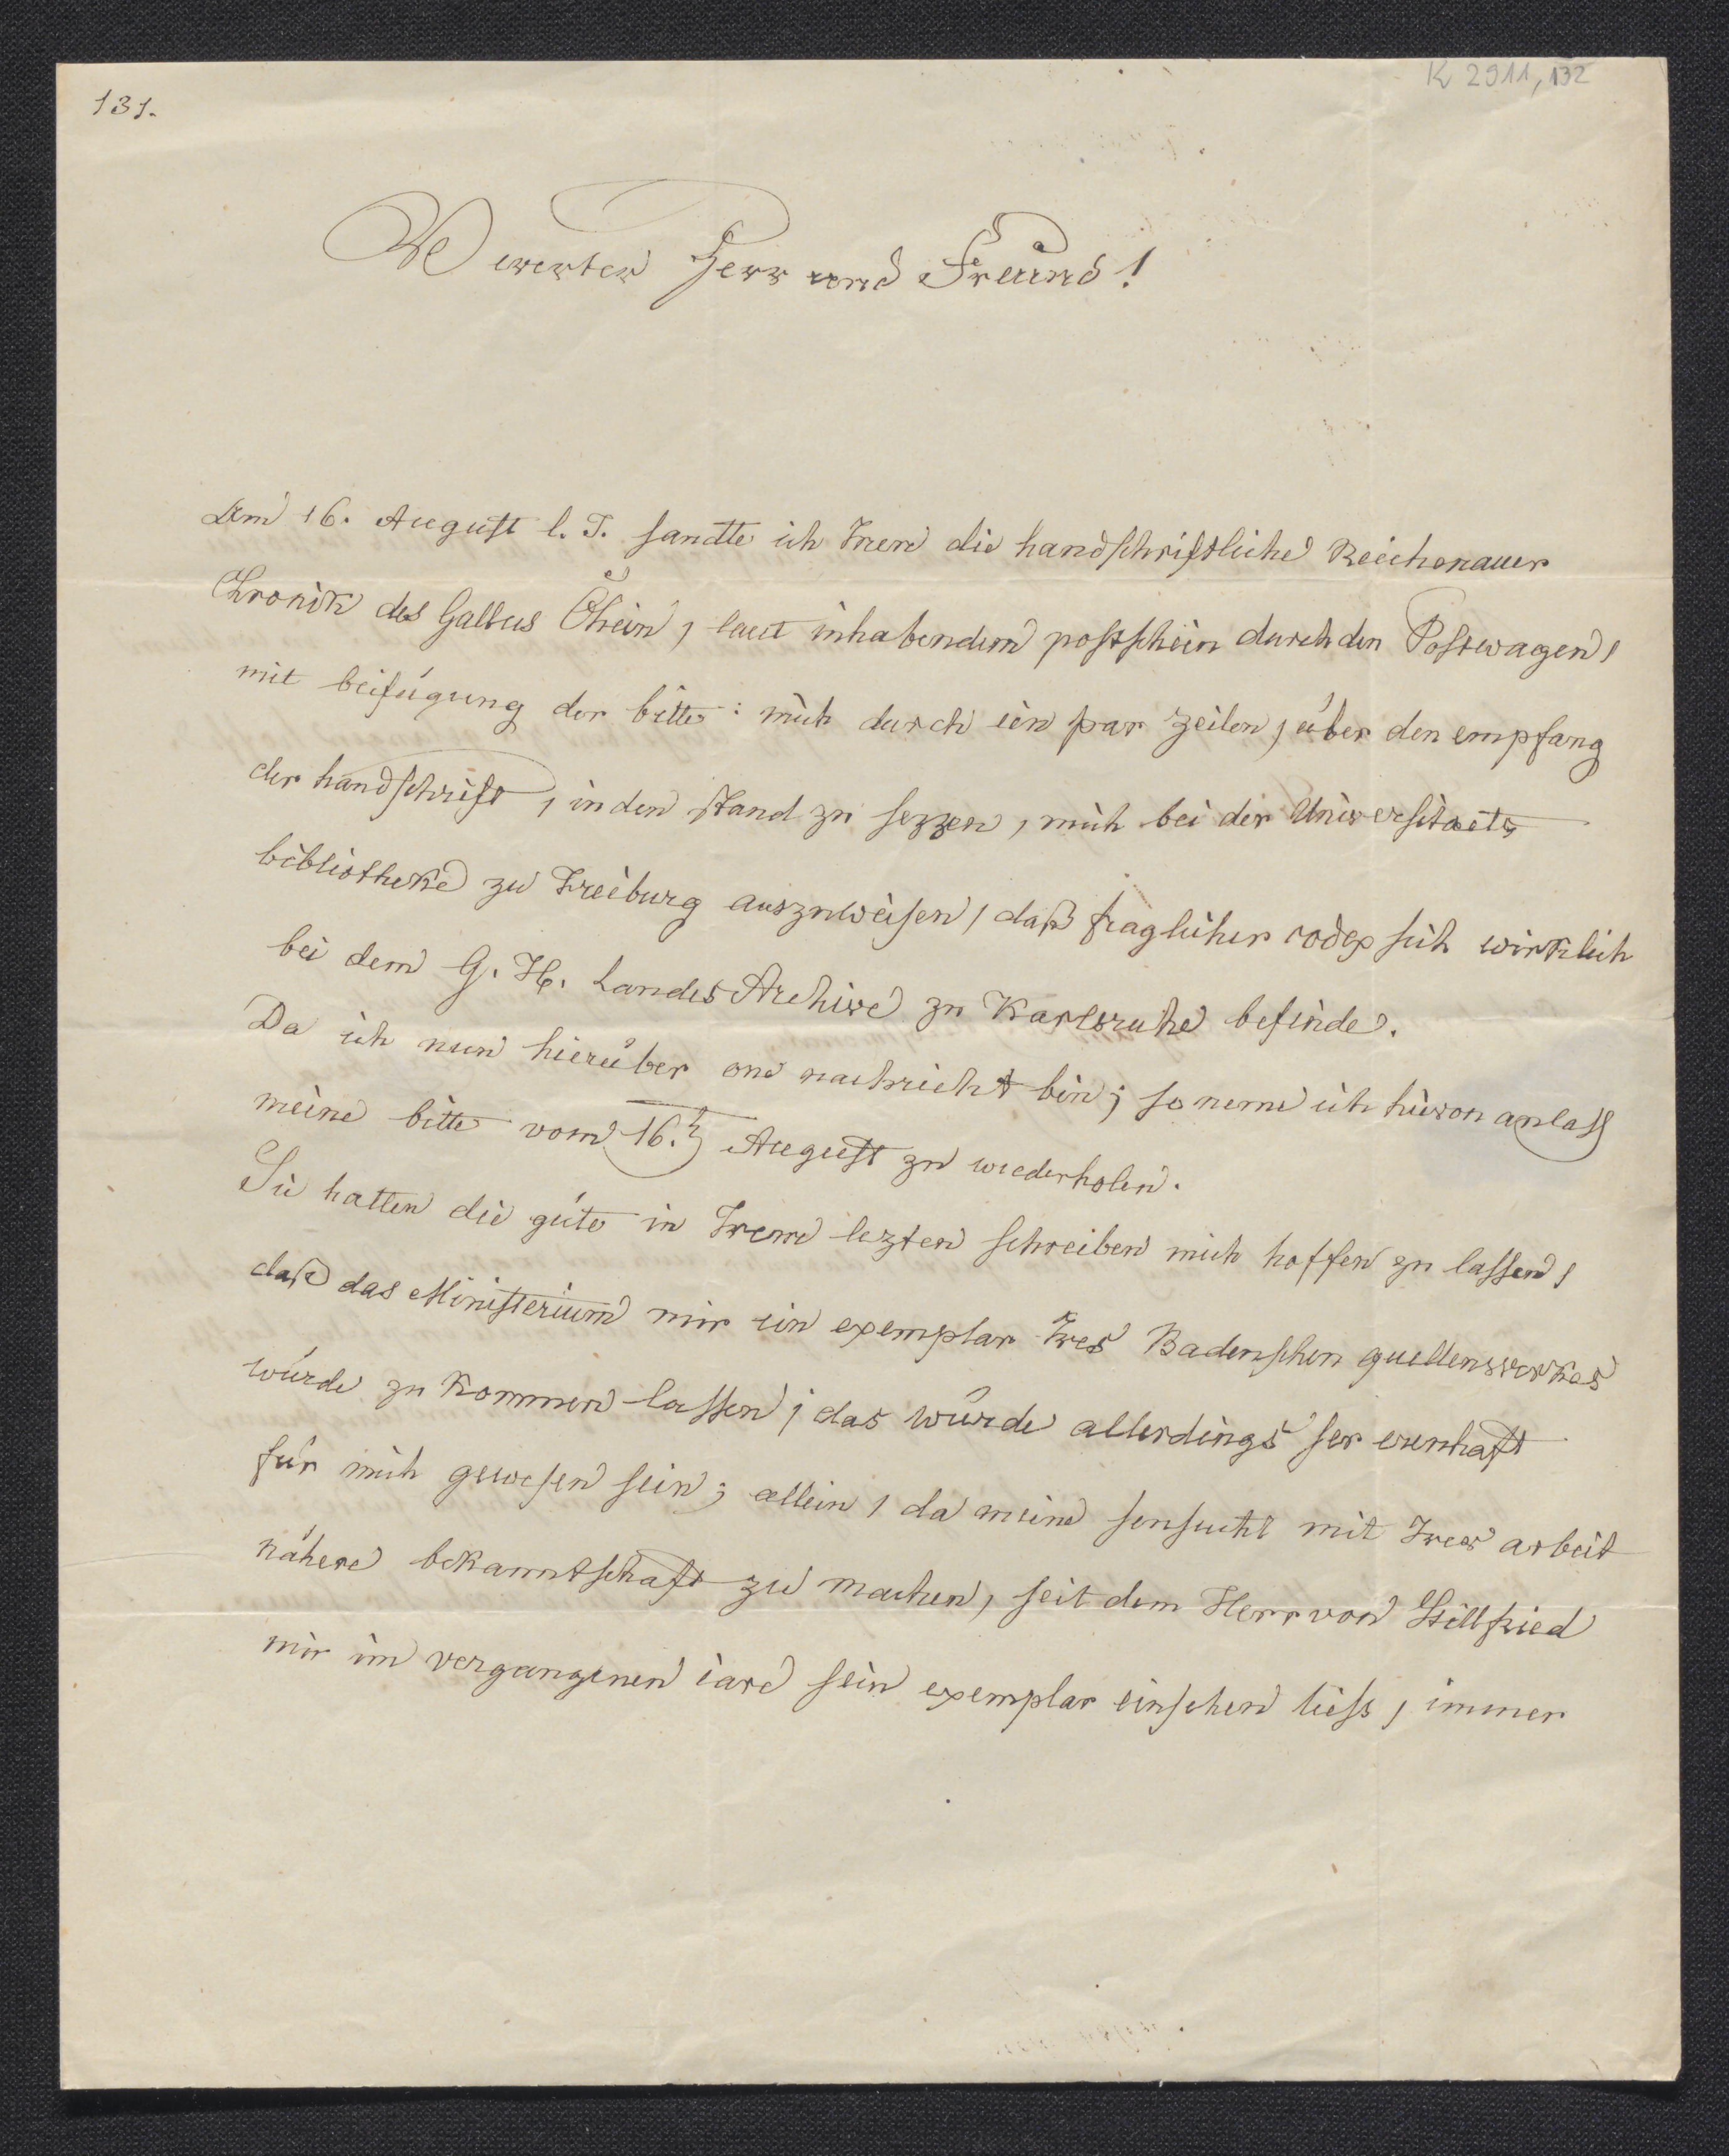 131.
K 2911,132
Wererter Herr und Freund!
Am 16. August l. J. sandte ich Inen die handschriftliche Reichenauer
Chronik des Gallus Öhein, laut inhabendem postschein durch den Postwagen,
mit beifügung der bitte: mich durch ein par zeilen, über den empfang
der handschrift, in den stand zu sezzen, mich bei der Universitaets
bibliotheke zu Freiburg auszuweisen, daß fraglicher codex sich wirklich
bei dem G. H. Landes Archive zu Karlsruhe befinde.
Da ich nun hierüber one nachricht bin; so neme ich hievon anlass
meine bitte vom 16.t August zu wiederholen.
Sie hatten die güte in Irem lezten schreiben mich hoffen zu lassen,
daß das Ministerium mir ein exemplar Ires Badenschen quellenwerkes
würde zu kommen lassen; das würde allerdings ser erenhaft
für mich gewesen sein; allein, da meine sensucht mit Irer arbeit
nähere bekanntschaft zu machen, seit dem Herr von Stillfried
mir im vergangenen iare sein exemplar einsehen liess, immer